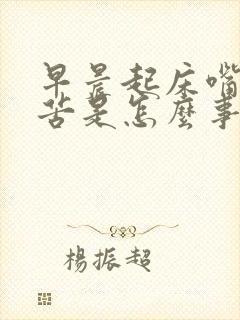 早晨起床嘴
苦是怎麼事
楊振超